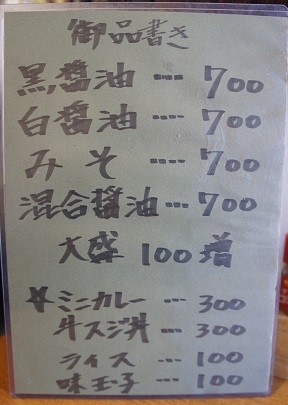 御品書き
黒醤油 --- 700
白醤油 --- 700
みそ --- 700
混合醤油 --- 700
大盛 100増
ミニカレー --- 300
牛スジ丼 --- 300
ライス --- 100
味玉子 --- 100